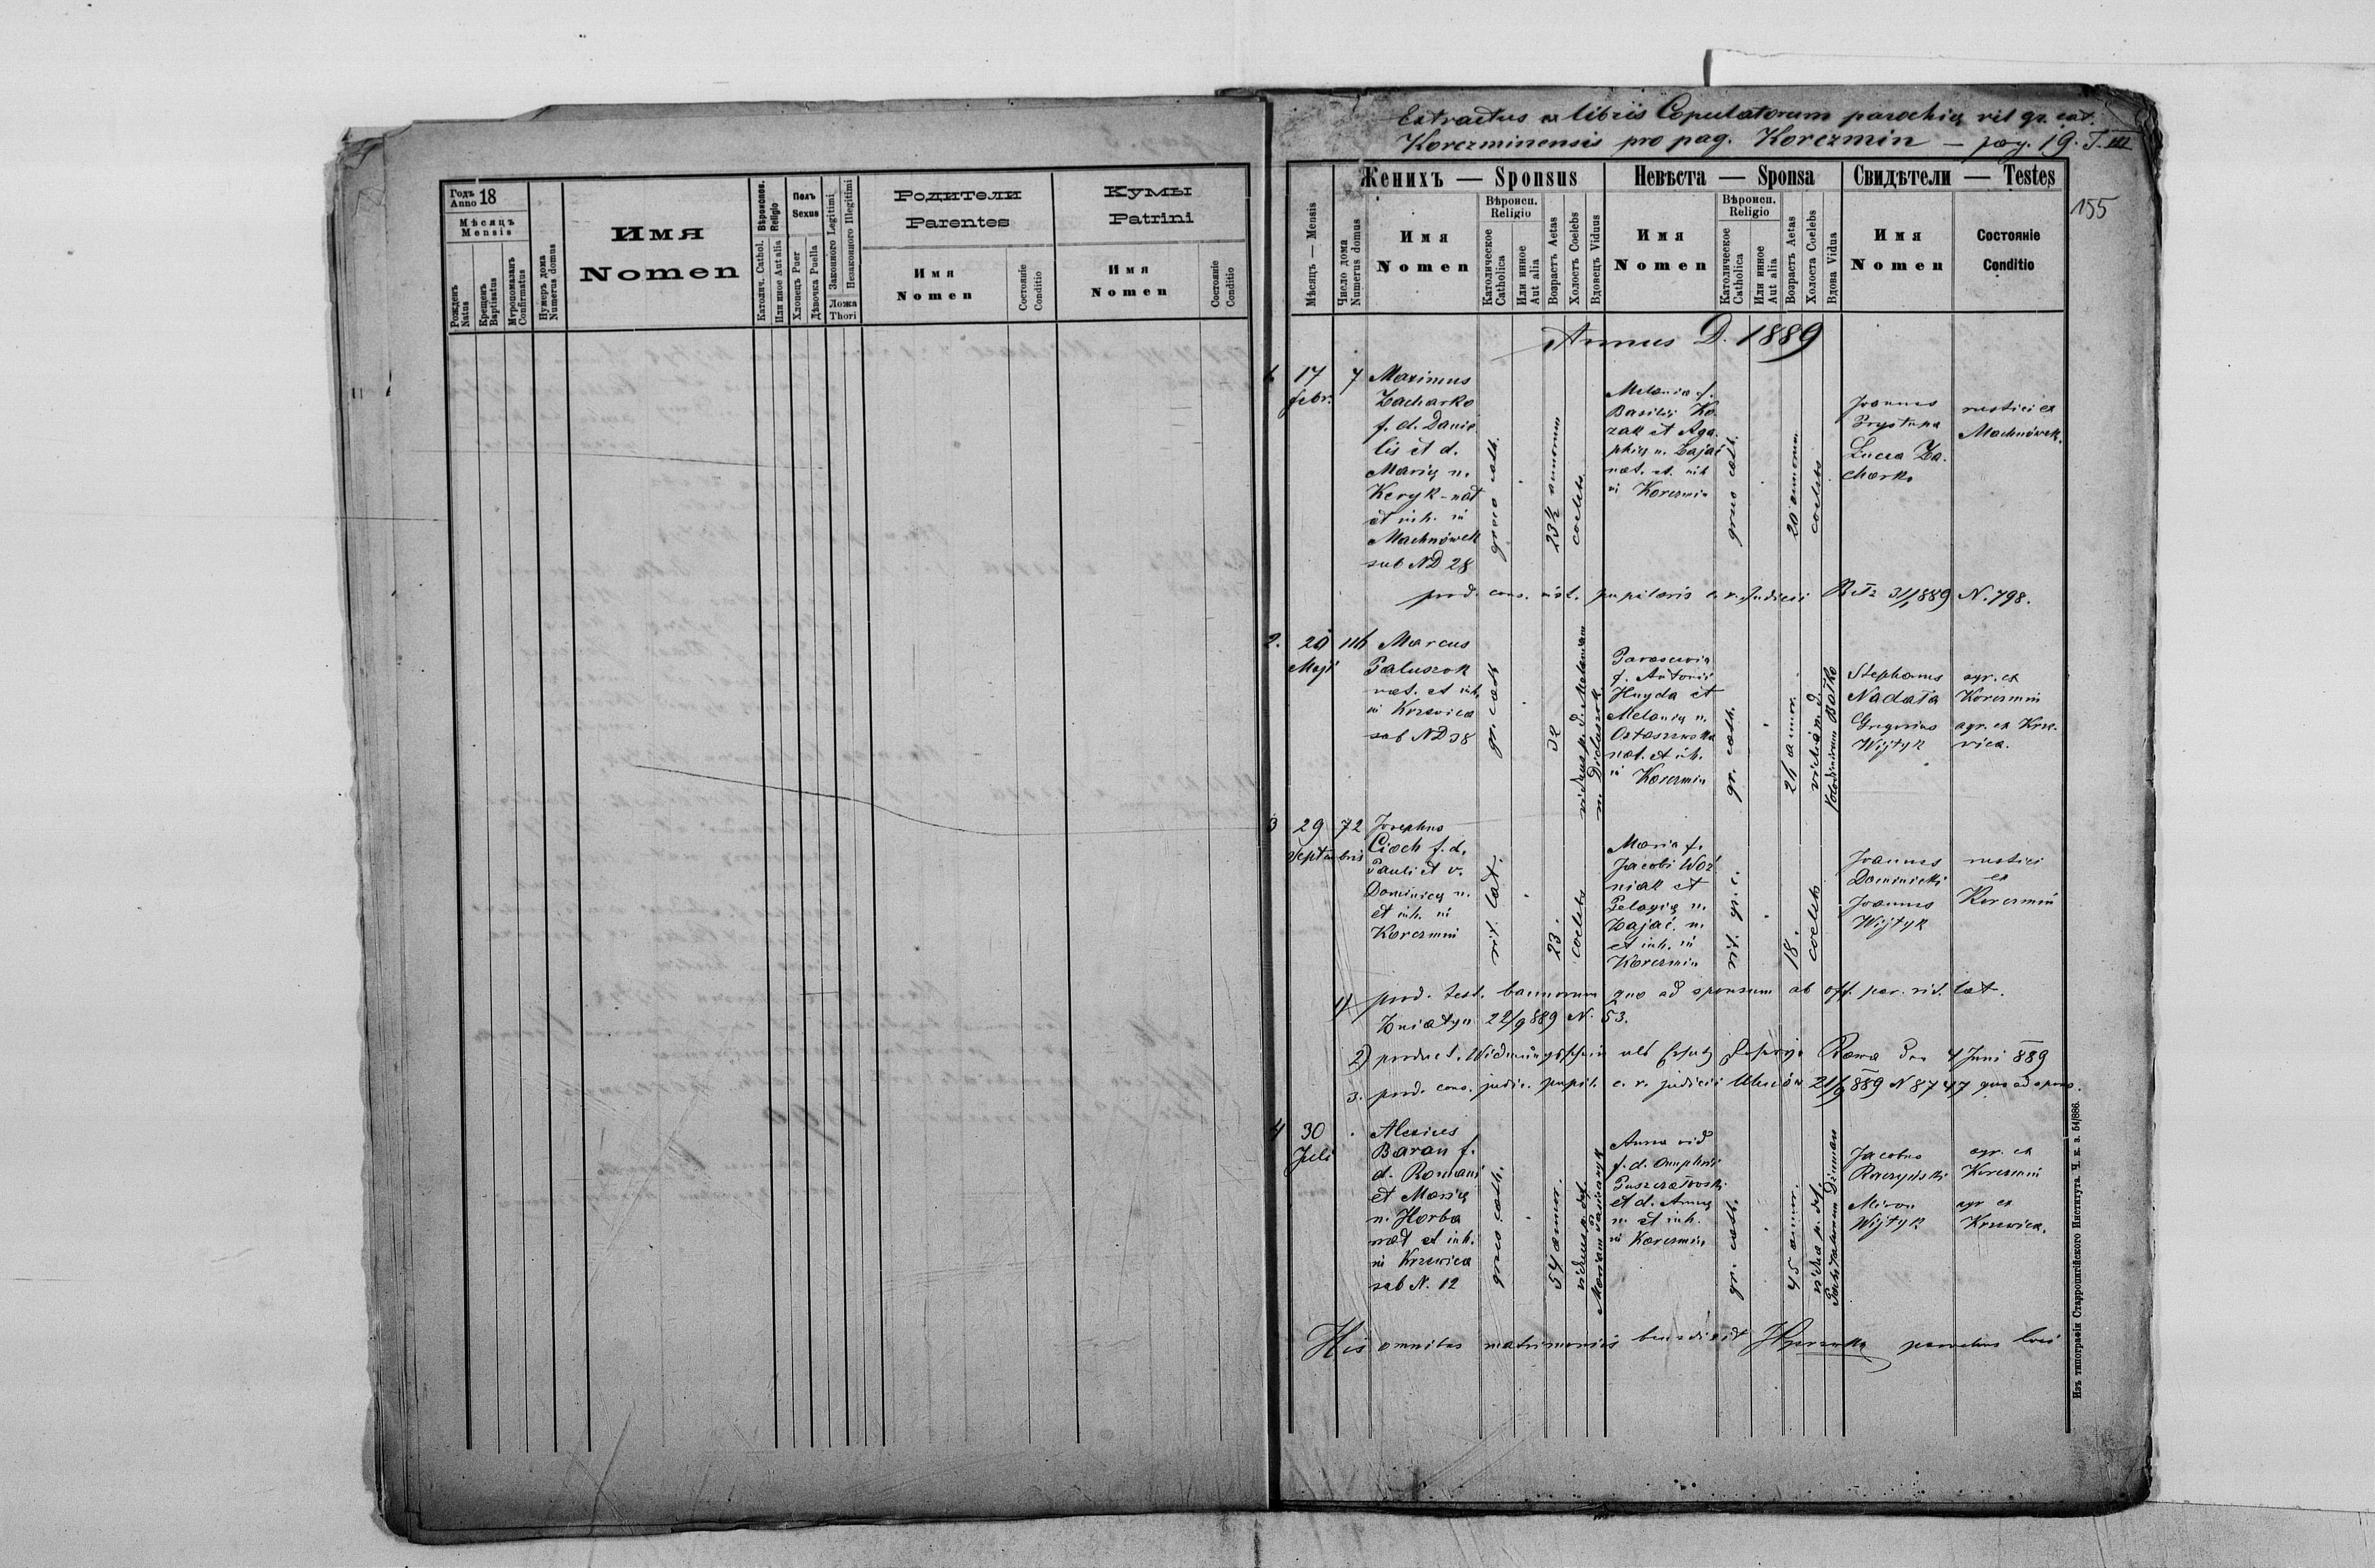 Годъ Anno 18
Мѣсяцъ
Mensis
Рожденъ
Natus
Крещенъ
Baptisatus
Мѵропомазанъ
Confirmatus
Нумеръ дома
Numerus domus
Имя
Nomen
Вѣроисповв.
Religio
Католич. Cathol.
Или иное Aut alia
Полъ
Sexus
Хлопецъ Puer
Дѣвочка Puella
Законного Legitimi
Незаконного Illegitimi
Ложа
Thori
Родители
Parentes
Имя
Nomen
Состояніе
Conditio
Кумы
Patrini
Имя
Nomen
Состояніе
Conditio
Extractus ex libris Copulatorum parochię rit gr. cat.
Korczminensis pro pag. Korczmin — pag. 19. T. III
155
Мѣсяцъ — Mensis
Число дома
Numerus domus
Женихъ — Sponsus
Имя
Nomen
Вѣроисп.
Religio
Католическое
Catholica
Или инное
Aut alia
Возрастъ Aetas
Холостъ Coelebs
Вдовецъ Viduus
Невѣста — Sponsa
Имя
Nomen
Вѣроисп.
Religio
Католическое
Catholica
Или инное
Aut alia
Возрастъ Aetas
Холоста Coelebs
Вдова Vidua
Свидѣтели — Testes
Имя
Nomen
Состояніе
Conditio
Annus D. 1889
1. 17 7
febr.
Maximus
Zacharko
f. d. Danie
lis et d.
Marię n.
Keryk - nat
et inh. in
Machnówek
sub ND 28
graeco cath.
23½ annorum
coelebs
Melania f.
Basilii Ko
zak et Aga
phię n. Zając
nat. et inh
in Korczmin
graeco cath.
20 annorum
coelebs
Joannes
Prystupa
Lucas Za
charko
rustici ex
Machnówek.
prod. cons. inst. pupilaris c. r. Judicii Bełz 31/1 889 N. 798.
2. 20 116
Maji
Marcus
Paluszok
nat. et inh.
in Krzewica
sub ND 38
gr. cath
32
viduus p. d. Melaniam
Parascevia
f. Antonii
Huyda et
Melanię n.
Ostaszewska
nat. et inh.
in Korczmin
gr. cath.
24 annor.
vidua p. d.
Volodimirum Batko
Stephanus
Nadała
Gregorius
Wijtyk
agr. ex
Korczmin
agr. ex Krze
wica.
3 29 72
Septembris
Josephus
Cioch f. d.
Pauli et v.
Dominicę n.
et inh. in
Korczmin
rit. lat.
23.
coelebs
Maria f.
Jacobi Woź
niak et
Pelagię n.
Zając. n.
et inh. in
Korczmin
rit. gr. c.
18.
coelebs
Joannes
Dominicki
Joannes
Wijtyk
rustici
ex
Korczmin
1) prod. test. bannorum quo ad sponsum ab off. par. rit. lat.
Żniatyn 22/9 889 N. 53.
2) product. Widmungsschein als Ersatz Rawa den 4 Juni 889
3. prod. cons. judic. pupil. c. r. judicii Uhnów 21/9 889 N 8747 quo ad spons.
4 30 .
Juli
Alexius
Baran f.
d. Romani
et Marię
n. Horba
nat et inh.
in Krzewica
sub N. 12
graeco cath.
54 annor.
viduus p. def.
Anna vid
f. d. Onuphrii
Puszczałowski
et d. Annę
n. et inh.
in Korczmin
gr. cath.
45 annor.
vidua p. def.
Jacobus
Raczyński
Miron
Wijtyk
agr. ex
Korczmin
agr ex
Krzewica.
His omnibus matrimoniis benedixit parochus loci
Изъ типографіи Ставропигійского Института. Ч. к. з. 54/886.